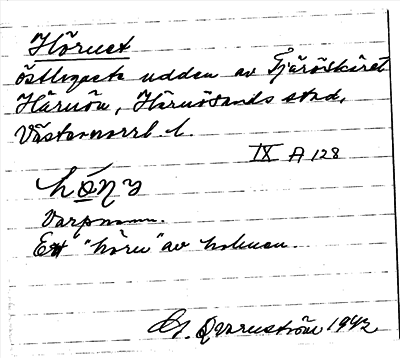 Hörnet
östligaste udden av Fjäröskäret
Härnön, Härnösands stad,
Västernorrl. l.
IX A 128
Varpnamn.
Ett "hörn" av holmen.
Qvarnström 1942